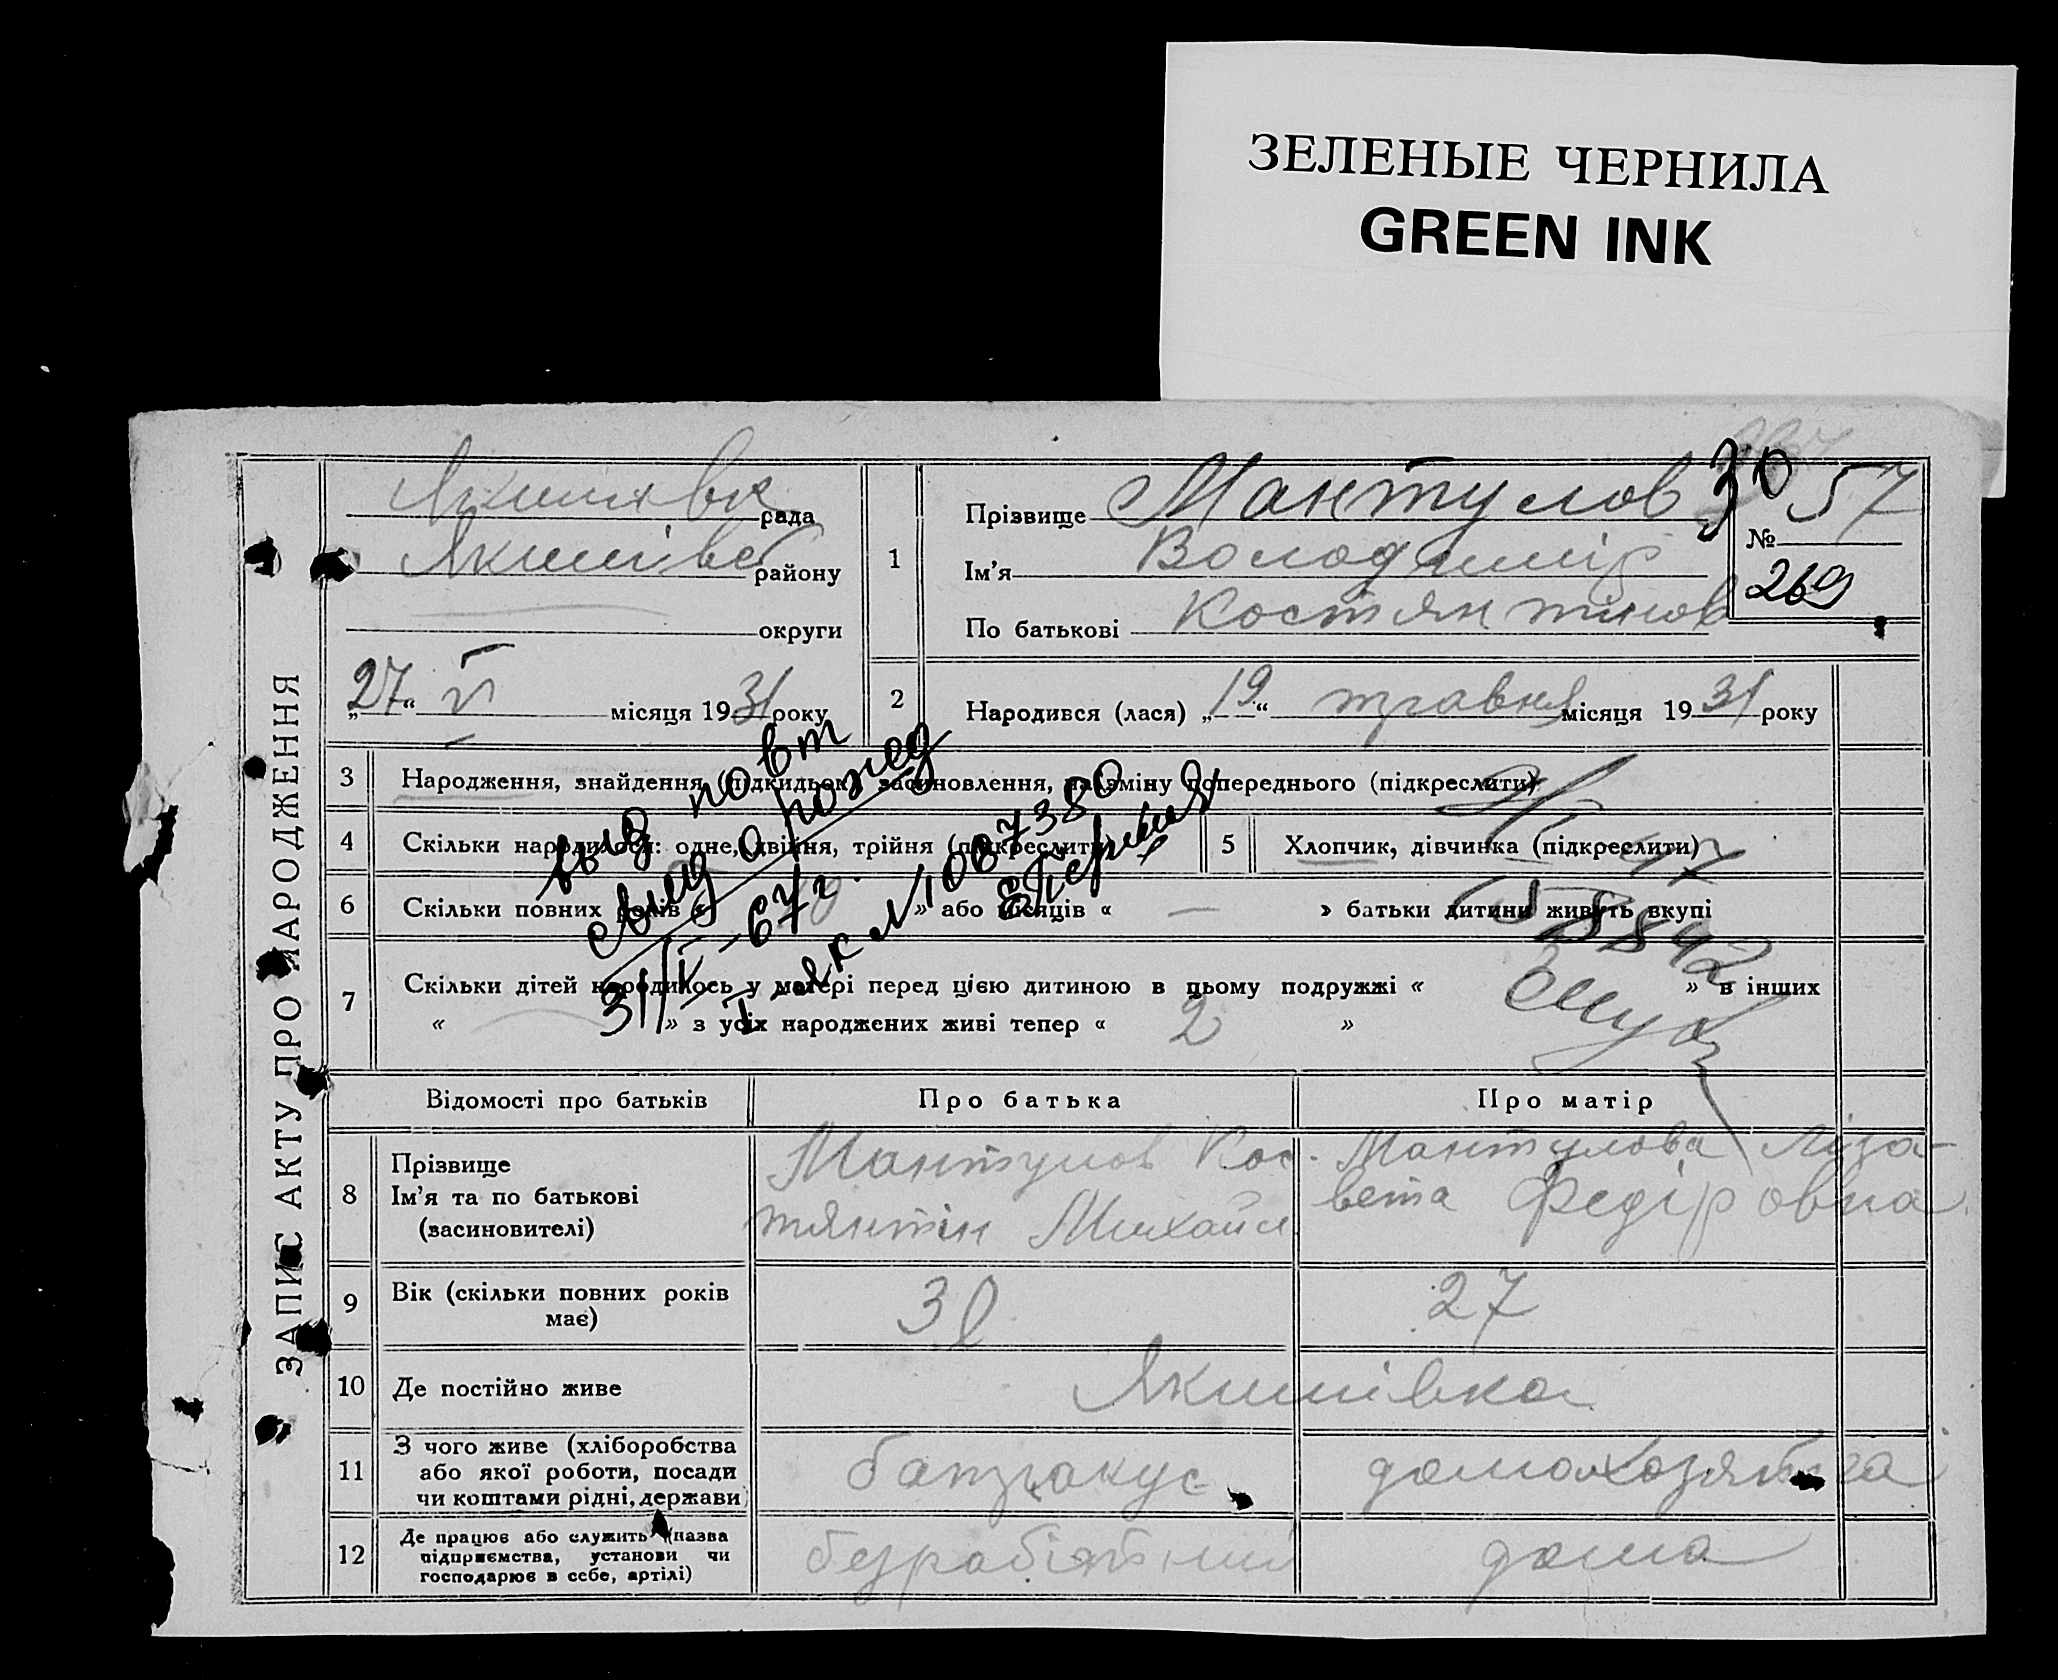 ЗЕЛЕНЫЕ ЧЕРНИЛА
GREEN INK
ЗАПИС АКТУ ПРО НАРОДЖЕННЯ
рада
Якимівс району
округи
„27“ V місяця 1931 року
1
Прізвище Мантулов
Ім'я Володимір
По батькові Костянтинов
30 57
№
269
2
Народився (лася) „19“ травня місяця 1931 року
3 Народження, знайдення (підкидьок) засиновлення, на зміну попереднього (підкреслити)
4 Скільки народилося: одне, двійня, трійня (підкреслити)
5 Хлопчик, дівчинка (підкреслити)
6 Скільки повних років « » або місяців « — » батьки дитини живуть вкупі
7 Скільки дітей народилось у матері перед цією дитиною в цьому подружжі « » в інших
« » з усіх народжених живі тепер « 2 »
выд повт
свид о рожд
31/IV-67г.
Відомості про батьків Про батька Про матір
8 Прізвище
Ім'я та по батькові
(засиновителі)
Мантулов Кос-
тянтін Михайл.
МантуловаЛіза-
вета Федіровна
9 Вік (скільки повних років
має)
27
10 Де постійно живе Якимівка
11 З чого живе (хліборобства
або якої роботи, посади
чи коштами рідні, держави)
батракує
домохозяйка
12 Де працює або служить (назва
підприємства, установи чи
господарює в себе, артілі)
безробітний
дома